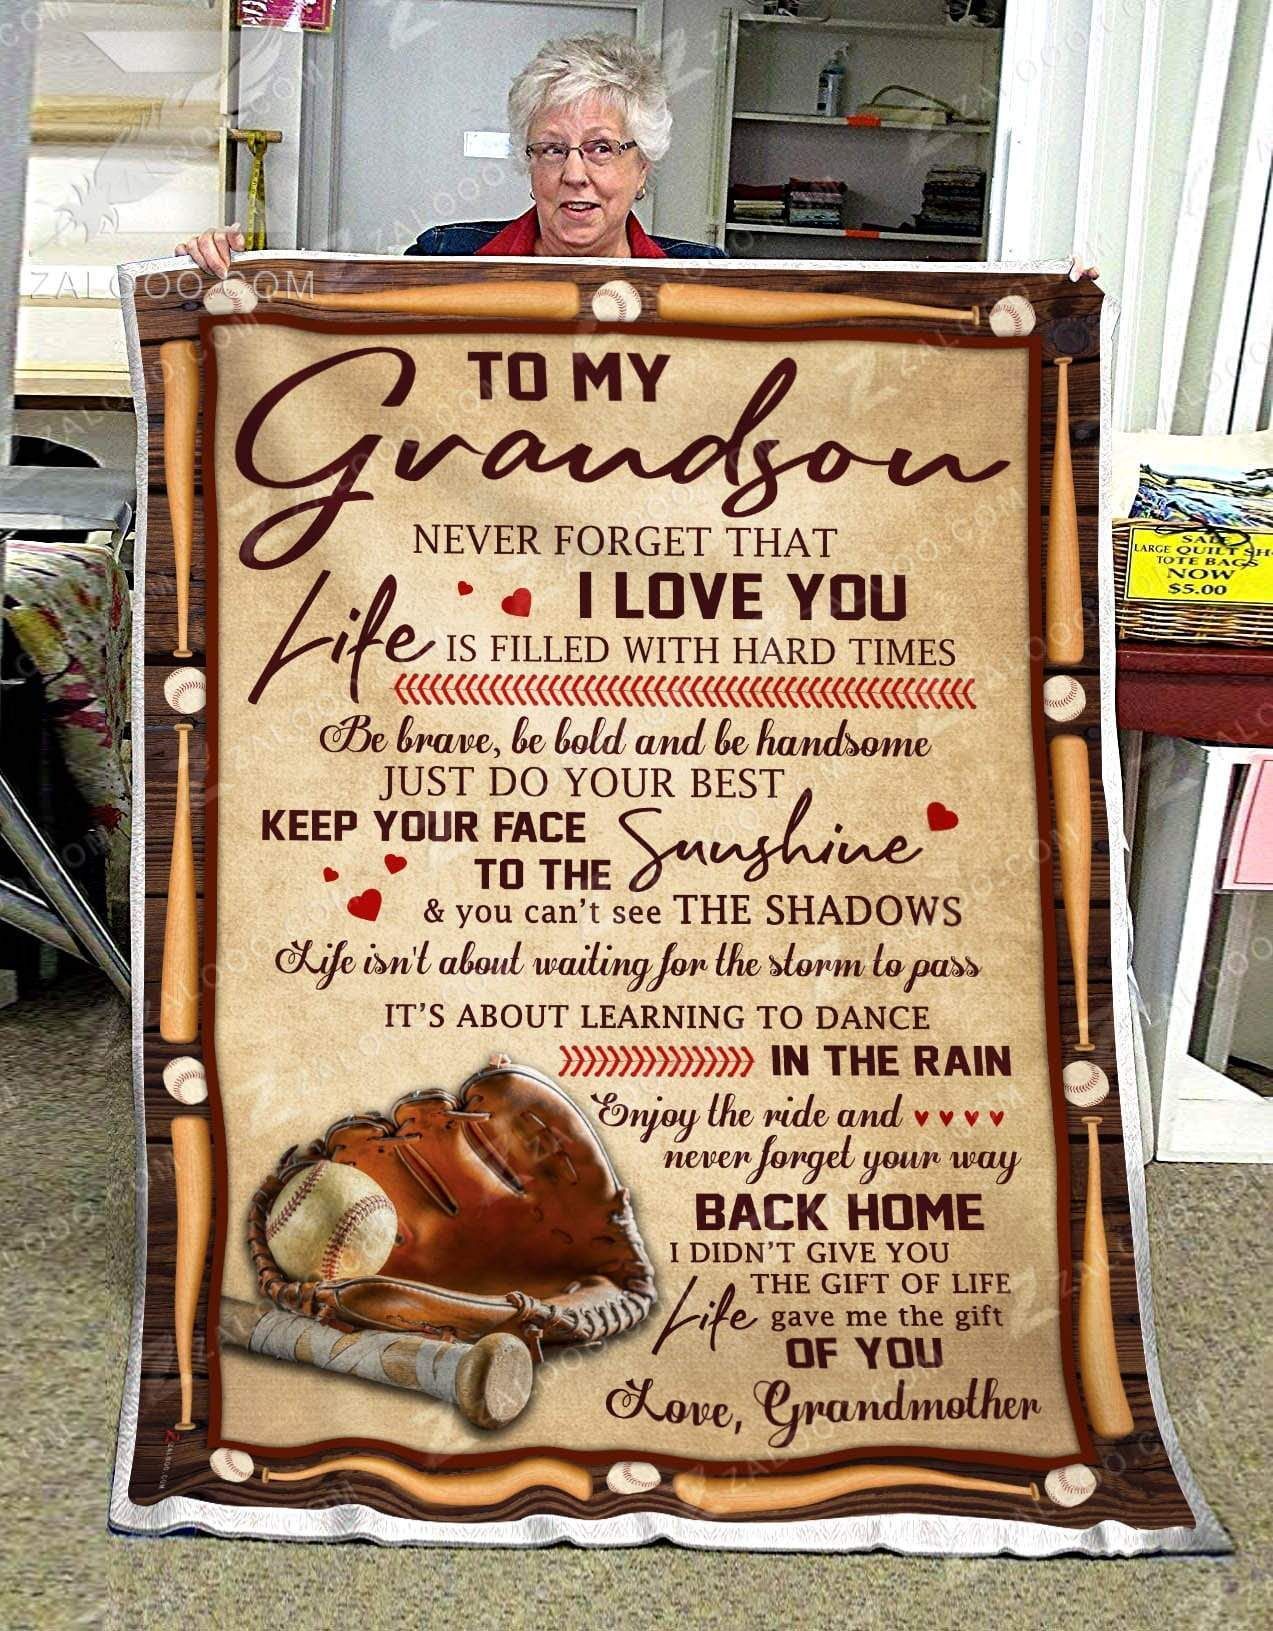 ZALOOO.COM
TO MY
Grandson
NEVER FORGET THAT
I LOVE YOU
Life IS FILLED WITH HARD TIMES
Be brave, be bold and be handsome
JUST DO YOUR BEST
KEEP YOUR FACE
TO THE Sunshine
& you can't see THE SHADOWS
Life isn't about waiting for the storm to pass
IT'S ABOUT LEARNING TO DANCE
IN THE RAIN
Enjoy the ride and
never forget your way
BACK HOME
I DIDN'T GIVE YOU
THE GIFT OF LIFE
Life gave me the gift
OF YOU
Love, Grandmother
SALE
LARGE QUILT SH
TOTE BAGS
NOW
$5.00